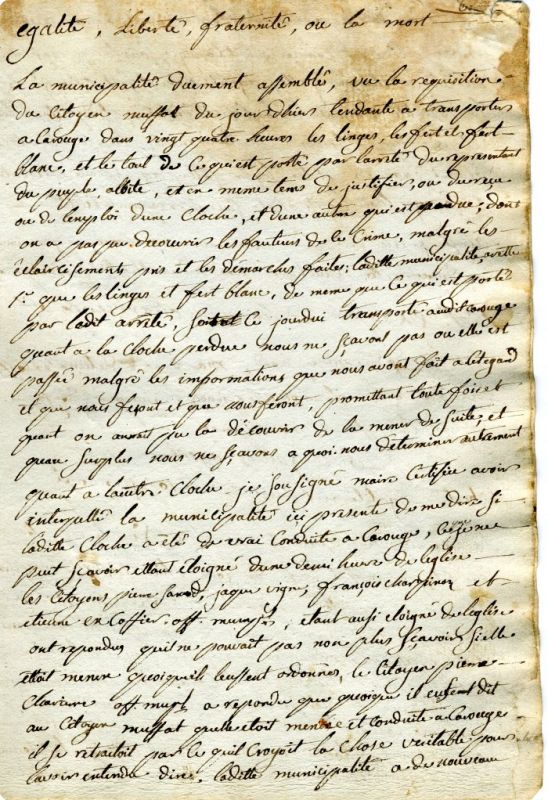 egalité, Liberté, fraternité, ou la mort
La municipalité duement assemblé, vu la requisition
du Citoyen mussat du jour d'hier tendante a transporter
a Carouge dans vingt quatre heures les linges, les fert et fert
blanc, et le tout de ce qui est porté par larrité du representant
du peuple albite, et en meme tems de justifier, ou du recu
ou de lemploi dune Cloche, et dune autre qui est perdue, dont
on a pas pu decouvrir les fauteurs de le Crime, malgré les
éclaircisements pris et les démarches faites; laditte municipalité arrette
1° que les linges et fert blanc, de meme que ce qui est porté
par ladit arrité, soitent ce jourdui transporté audit Carouge
quant a la Cloche perdue nous ne sçavont pas ou elle est
passée malgré les informations que nous avont fait a cet egard
et que nous feront et que nous feront, promettant toute fois et
quant on aurat pu la découvrir de la mener de suite, et
quau surplus nous ne sçavons a quoi nous determiner autrement
quant a lautre Cloche. je sousigné maire Certifie avoir
interpellé la municipalité ici presente de me dire si
laditte Cloche a été de vrai Conduite a Carouge, ce que je ne
peut sçavoir ettant éloigné dune demi heure de leglise
les Citoyens pierre jaque vigne, françois et
etienne en Coffier off. municip, etant aussi eloigné de leglise
ont repondus quil ne pouvait pas non plus sçavoir si elle
ettoit menée quoiqu'ils leussent ordonnés, le Citoyen pierre
off muni a repondu que quoique il eusent dit
au Citoyen mussat quelle etoit menée et conduite a Carouge
il se retractoit par ce quil Croyoit la Chose veritable pour
lavoir entendu dire, laditte municipalité a de nouveau